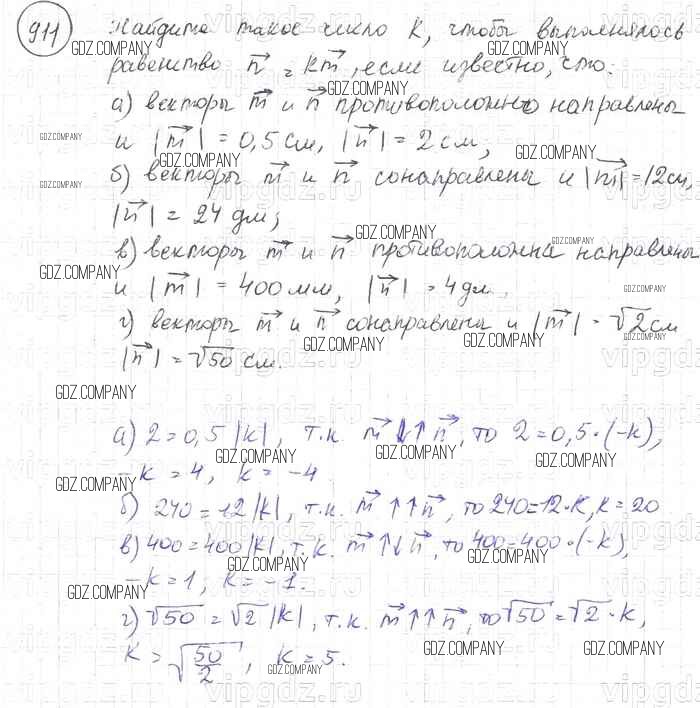 911 Найдите такое число k, чтобы выполнялось
равенство n⃗ = km⃗, если известно, что:
а) векторы m⃗ и n⃗ противоположно направлены
и |m⃗| = 0,5 см, |n⃗| = 2 см;
б) векторы m⃗ и n⃗ сонаправлены и |m⃗| = 12 см,
|n⃗| = 24 дм;
в) векторы m⃗ и n⃗ противоположна направлены
и |m⃗| = 400 мм, |n⃗| = 4 дм.
г) векторы m⃗ и n⃗ сонаправлены и |m⃗| = √2 см
|n⃗| = √50 см.
а) 2 = 0,5 |k|, т.к. m⃗ ↓↑ n⃗, то 2 = 0,5 · (-k),
-k = 4, k = -4
б) 240 = 12 |k|, т.к. m⃗ ↑↑ n⃗, то 240 = 12 · k, k = 20
в) 400 = 400 |k|, т.к. m⃗ ↑↓ n⃗, то 400 = 400 · (-k),
-k = 1, k = -1.
г) √50 = √2 |k|, т.к. m⃗ ↑↑ n⃗, то √50 = √2 · k,
k = √(50/2), k = 5.
GDZ.COMPANY
vipgdz.ru